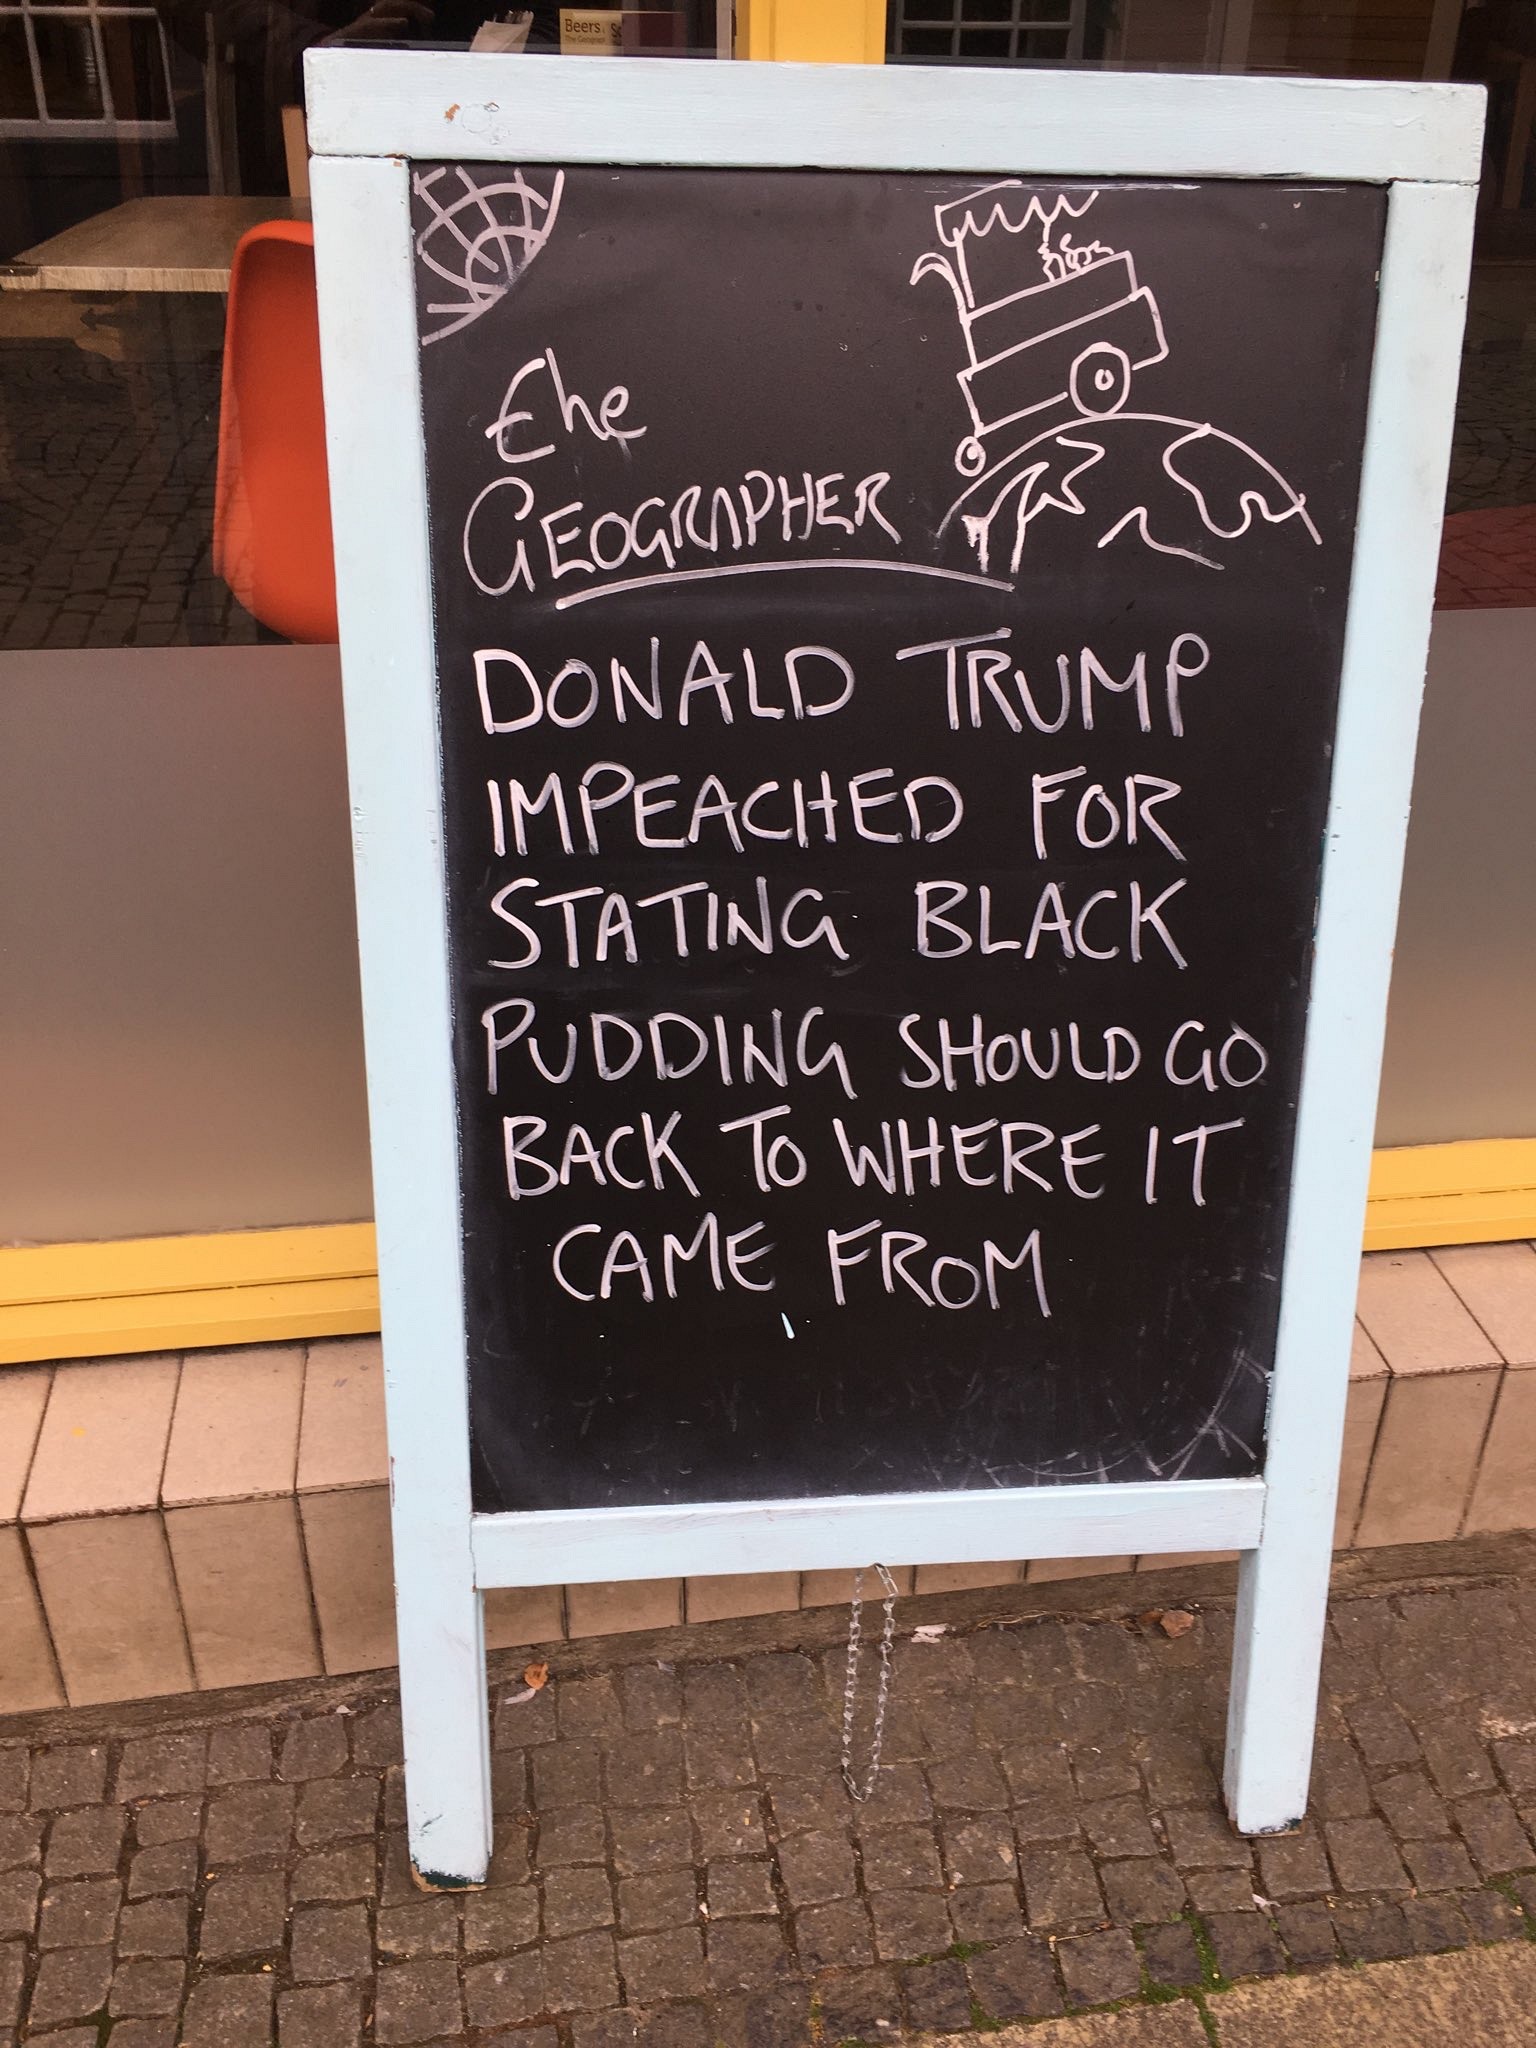 Beers
The Geograph
The
GEOGRAPHER
DONALD TRUMP
IMPEACHED FOR
STATING BLACK
PUDDING SHOULD GO
BACK TO WHERE IT
CAME FROM